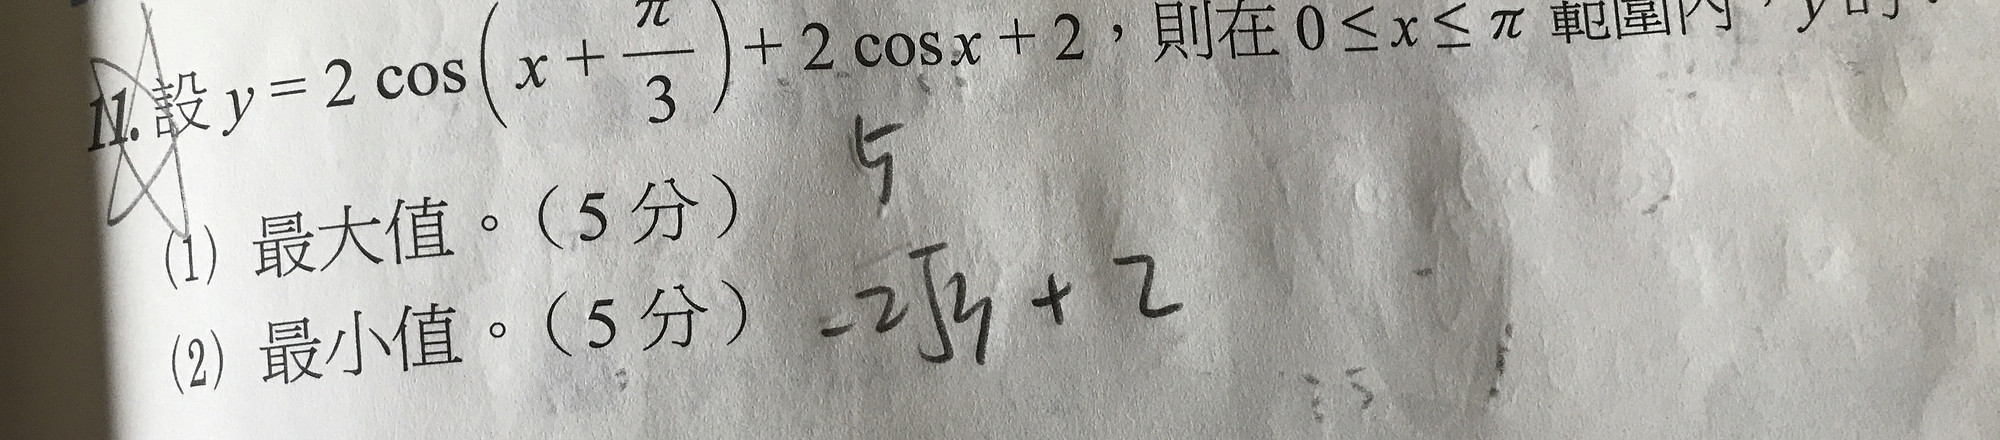 11. 設 y = 2 cos(x + π/3) + 2 cosx + 2，則在 0 ≤ x ≤ π 範圍內，y 的
5
(1) 最大值。（5 分）
(2) 最小值。（5 分） -2√3 + 2